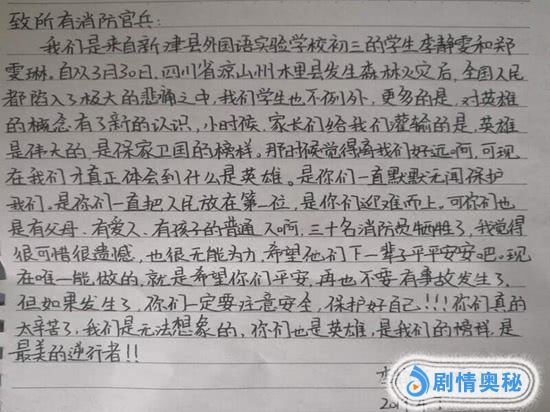 致所有消防官兵:
我们是来自新津县外国语实验学校初三的学生李静雯和郑
雯琳。自从3月30日,四川省凉山州木里县发生森林火灾后,全国人民
都陷入了极大的悲痛之中,我们学生也不例外,更多的是,对英雄
的概念有了新的认识,小时候,家长们给我们灌输的是,英雄
是伟大的,是保家卫国的榜样。那时候觉得离我们好远啊,可现
在我们才真正体会到什么是英雄。是你们一直默默无闻保护
我们。是你们一直把人民放在第一位,是你们迎难而上。可你们也
是有父母、有爱人、有孩子的普通人啊,三十名消防员牺牲了,我觉得
很可惜很遗憾,也很无能为力,希望他们下一辈子平平安安吧。现
在唯一能做的,就是希望你们平安,再也不要有事故发生了,
但如果发生了,你们一定要注意安全,保护好自己!!!你们真的
太辛苦了,我们是无法想象的,你们也是英雄,是我们的榜样,是
最美的逆行者!!
剧情奥秘